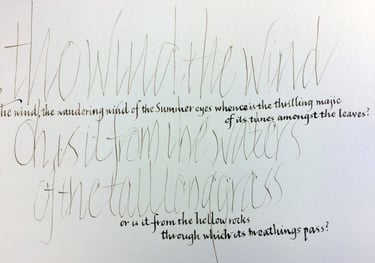 the wind, the wind
the wind, the wandering wind of the Summer eyes whence is the thrilling majic
of its tunes amongst the leaves?
Oh is it from the waters
of the tall long grass
or is it from the hollow rocks
through which its breathings pass?